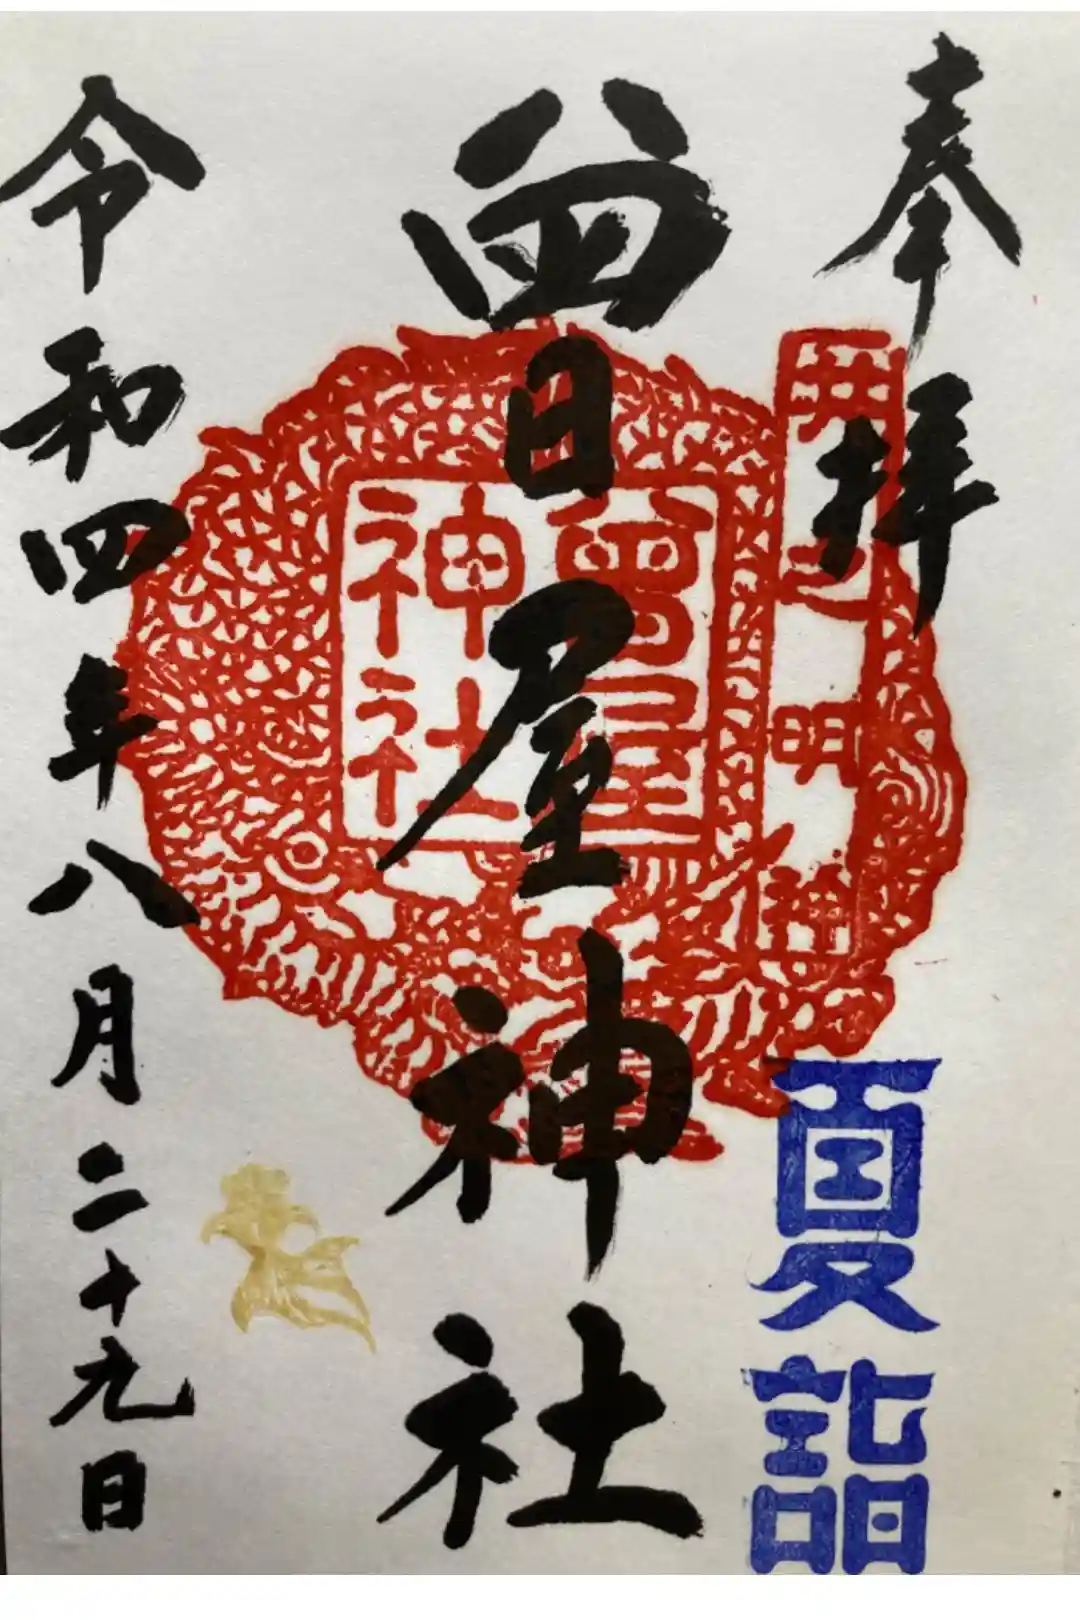 奉拝
井之明神
夏詣
曽屋神社
曾屋
神社
令和四年八月二十九日